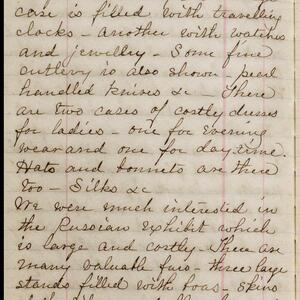 case is filled with travelling
clocks - another with watches
and jewellry - Some fine
cutlery is also shown - pearl
handled knives &c - There
are two cases of costly dresses
for ladies - one for evening
wear and one for day time.
Hats and bonnets are there
too - Silks &c
We were much interested in
the Russian exhibit which
is large and costly. There are
many valuable furs - three large
stands filled with boas - skins